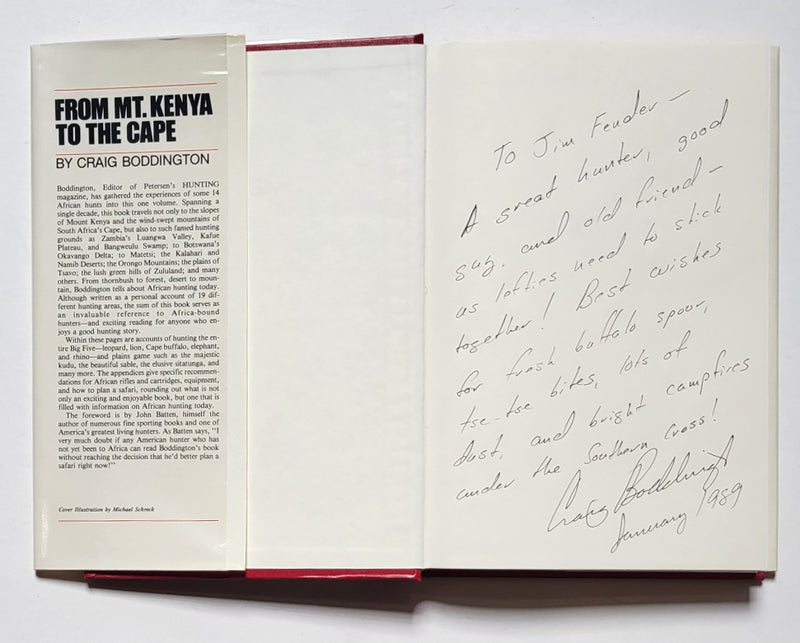 FROM MT. KENYA
TO THE CAPE
BY CRAIG BODDINGTON
Boddington, Editor of Petersen's HUNTING
magazine, has gathered the experiences of some 14
African hunts into this one volume. Spanning a
single decade, this book travels not only to the slopes
of Mount Kenya and the wind-swept mountains of
South Africa's Cape, but also to such famed hunting
grounds as Zambia's Luangwa Valley, Kafue
Plateau, and Bangweulu Swamp; to Botswana's
Okavango Delta; to Matetsi; the Kalahari and
Namib Deserts; the Orongo Mountains; the plains of
Tsavo; the lush green hills of Zululand; and many
others. From thornbush to forest, desert to moun-
tain, Boddington tells about African hunting today.
Although written as a personal account of 19 dif-
ferent hunting areas, the sum of this book serves as
an invaluable reference to Africa-bound
hunters—and exciting reading for anyone who en-
joys a good hunting story.
Within these pages are accounts of hunting the en-
tire Big Five—leopard, lion, Cape buffalo, elephant,
and rhino—and plains game such as the majestic
kudu, the beautiful sable, the elusive sitatunga, and
many more. The appendices give specific recommen-
dations for African rifles and cartridges, equipment,
and how to plan a safari, rounding out what is not
only an exciting and enjoyable book, but one that is
filled with information on African hunting today.
The foreword is by John Batten, himself the
author of numerous fine sporting books and one of
America's greatest living hunters. As Batten says, "I
very much doubt if any American hunter who has
not yet been to Africa can read Boddington's book
without reaching the decision that he'd better plan a
safari right now!"
Cover Illustration by Michael Schreck
To Jim Feuder —
A great hunter, good
guy, and old friend —
us lefties need to stick
together! Best wishes
for fresh buffalo spoor,
tse-tse bites, lots of
dust, and bright campfires
under the Southern Cross!
Craig Boddington
January 1989